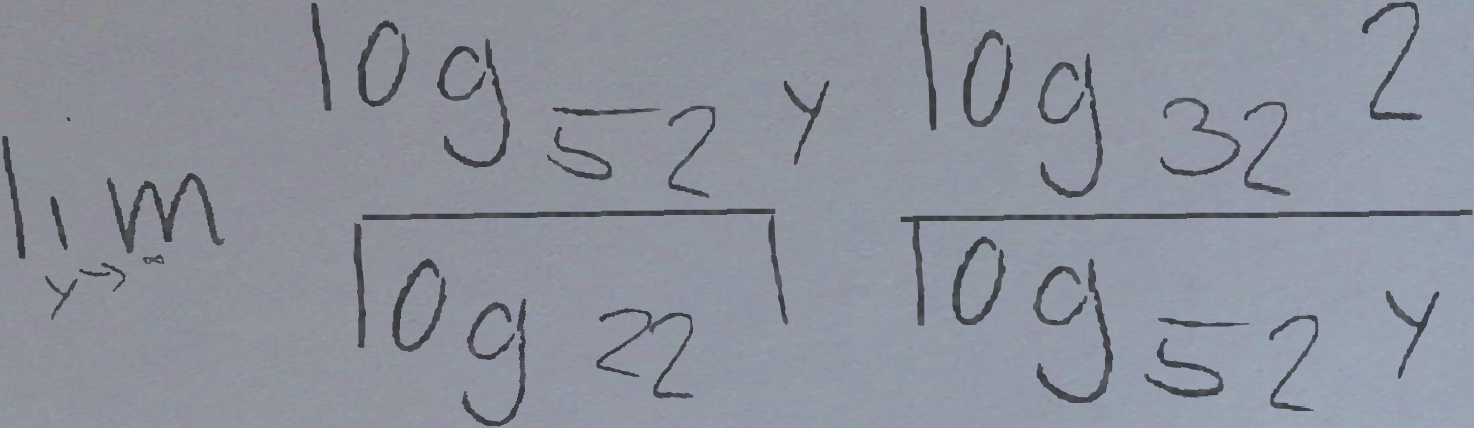 \lim_{y \to \infty} \frac{\log_{52} y}{\log_{22} 1} \frac{\log_{32} 2}{\log_{52} y}